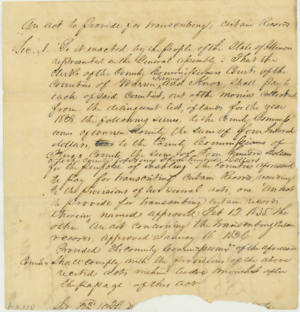 An act to Provide for transcribing certain Records
Sec. 1. Be it enacted by the People of the State of Illinois
represented in the General Assembly: That the
Clerks of the County Commissioners Court of the
Counties of Warren and Knox shall pay to
each of said Counties out of the monies collected
from the delinquent list of lands for the year
1838 the following sums, to the County Commiss
ioners of Warren County the sum of four hundred
dollars to the County Commissioners of
Knox County the sum of four hundred dollars
for the purpose of
to pay for transcribing certain Records
the provisions of two several acts, one an act
to Provide for transcribing certain records
therein named approved Feb 12 1835 the
other An act concerning the transcribing certain
records approved January 1836
Provided the County Commissioners of the aforesaid
Counties shall comply with the provisions of the above
recited acts within twelve months after
the passage of this act